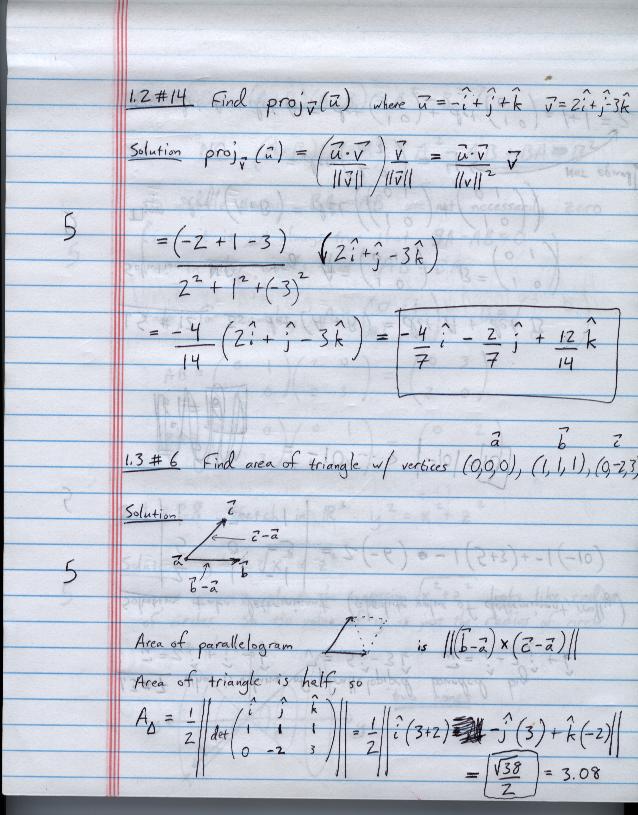 1.2 #14 Find proj_v⃗(u⃗) where u⃗ = -î + ĵ + k̂ v⃗ = 2î + ĵ - 3k̂
Solution proj_v⃗(u⃗) = (u⃗·v⃗ / ||v⃗||) v⃗ / ||v⃗|| = u⃗·v⃗ / ||v||² v⃗
5
= (-2 + 1 - 3) / (2² + 1² + (-3)²) (2î + ĵ - 3k̂)
= -4/14 (2î + ĵ - 3k̂) = -4/7 î - 2/7 ĵ + 12/14 k̂
a⃗ b⃗ c⃗
1.3 #6 Find area of triangle w/ vertices (0,0,0), (1,1,1), (0,-2,3)
Solution
c⃗
c⃗-a⃗
a⃗ b⃗
b⃗-a⃗
5
Area of parallelogram is ||(b⃗-a⃗) × (c⃗-a⃗)||
Area of triangle is half, so
A_Δ = 1/2 || det ( î ĵ k̂
1 1 1
0 -2 3 ) || = 1/2 || î(3+2) - ĵ(3) + k̂(-2) ||
= √38/2 = 3.08